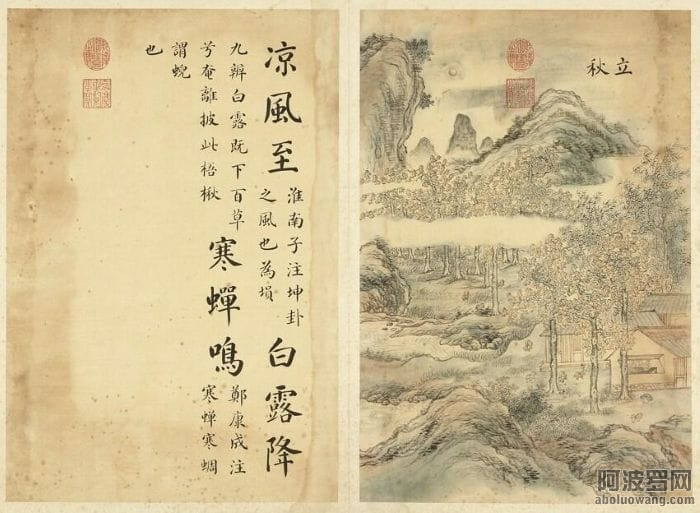 立秋
凉風至
淮南子注坤卦
之風也為塤
白露降
九辨白露既下百草
兮奄離披此梧楸
寒蟬鳴
鄭康成注
寒蟬寒蜩
謂蜺
也
阿波罗网
aboluowang.com